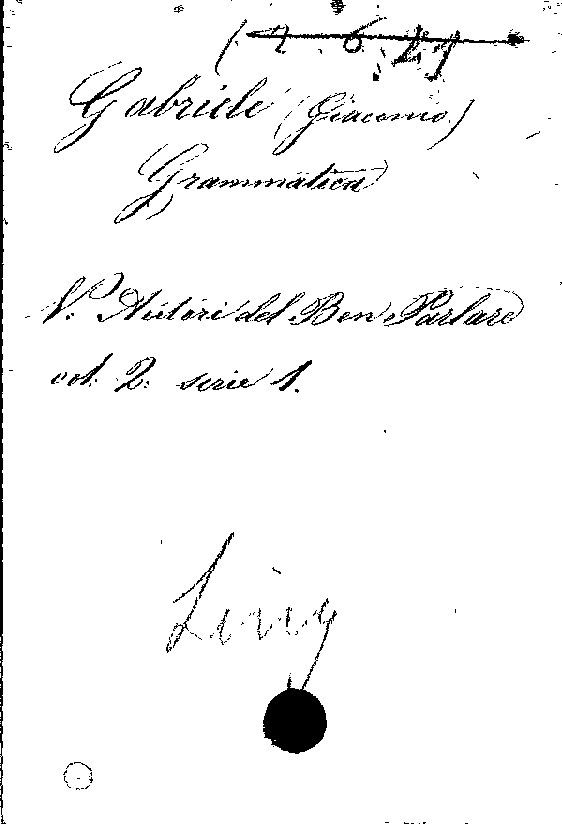 Gabriele (Giacomo)
Grammatica
V. Autori del Ben Parlare
vol. 2. serie 1.
Ling